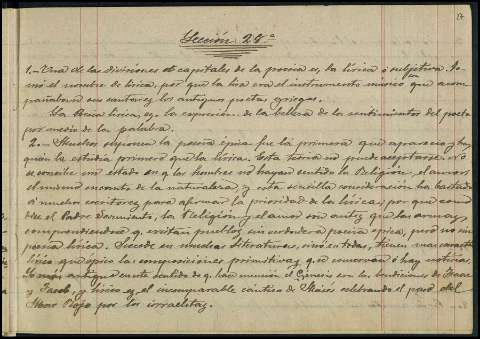 Lección 28ª
1.- Una de las divisiones capitales de la poesía es, la lírica ó subjetiva. To-
mó el nombre de lírica, por que la lira era el instrumento músico con que acom-
pañaban sus cantores los antiguos poetas griegos.
La Poesía lírica, es, la expresión de la belleza de los sentimientos del poeta
por medio de la palabra.
2.- Muchos suponen la poesía épica fue la primera que apareció y hay
quien la estudia primero que la lírica. Esta teoría no puede aceptarse. No
se concibe un estado en q. los hombres no hayan sentido la Religión, el amor,
el mismo encanto de la naturaleza, y esta sencilla consideración ha bastado
á muchos escritores para afirmar la prioridad de la lírica, por que como
dice el Padre Sarmiento, la Religión y el amor son antes que las armas,
comprendiendose q. existan pueblos sin verdadera poesía épica, pero no sin
poesía lírica. Sucede en muchas literaturas, sino en todas, tienen mas caracter
lírico que épico las composiciones primitivas q. se conservan ó hay noticias.
antiguas en este sentido de q. han mención el Génesis son las bendiciones de Isaac
y Jacob, y lírico es el incomparable cántico de Moisés celebrando el paso del
Mar Rojo por los israelitas.